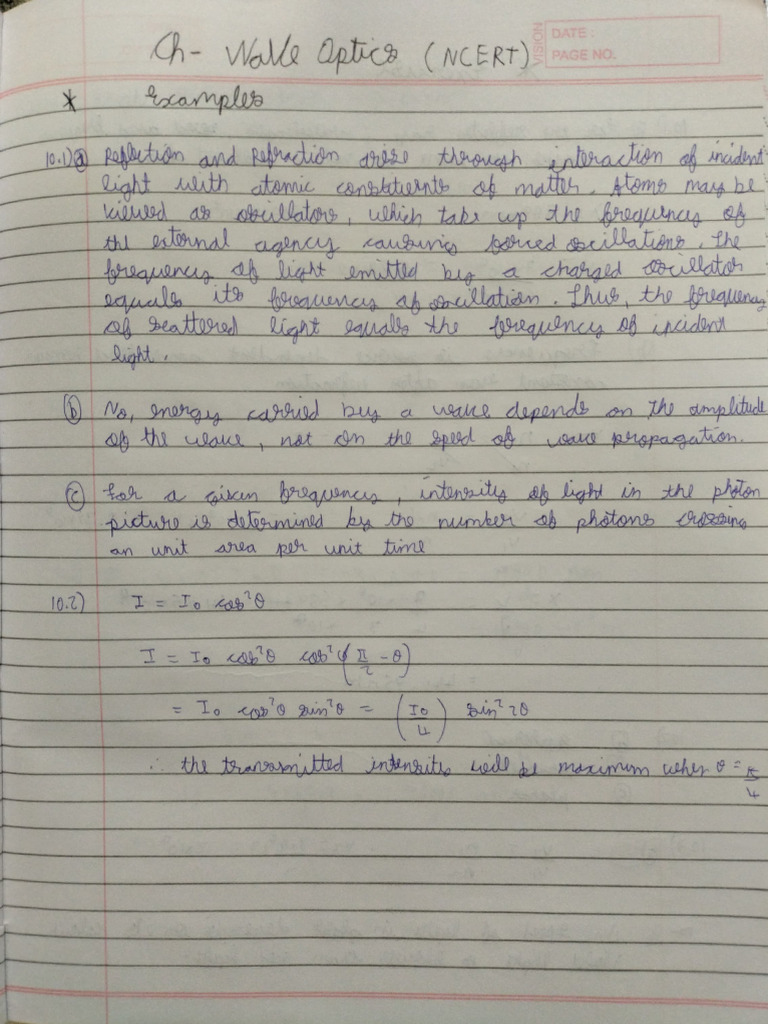 Ch- Wave Optics (NCERT)
VISION
DATE :
PAGE NO.
* Examples
10.1) (a) Reflection and Refraction arise through interaction of incident
light with atomic constituents of matter. Atoms may be
viewed as oscillators, which take up the frequency of
the external agency causing forced oscillations. The
frequency of light emitted by a charged oscillator
equals its frequency of oscillation. Thus, the frequency
of scattered light equals the frequency of incident
light.
(b) No, energy carried by a wave depends on the amplitude
of the wave, not on the speed of wave propagation.
(c) For a given frequency, intensity of light in the photon
picture is determined by the number of photons crossing
an unit area per unit time
10.2) I = I₀ cos²θ
I = I₀ cos²θ cos²(π/2 - θ)
= I₀ cos²θ sin²θ = (I₀/4) sin²2θ
∴ the transmitted intensity will be maximum when θ = π/4